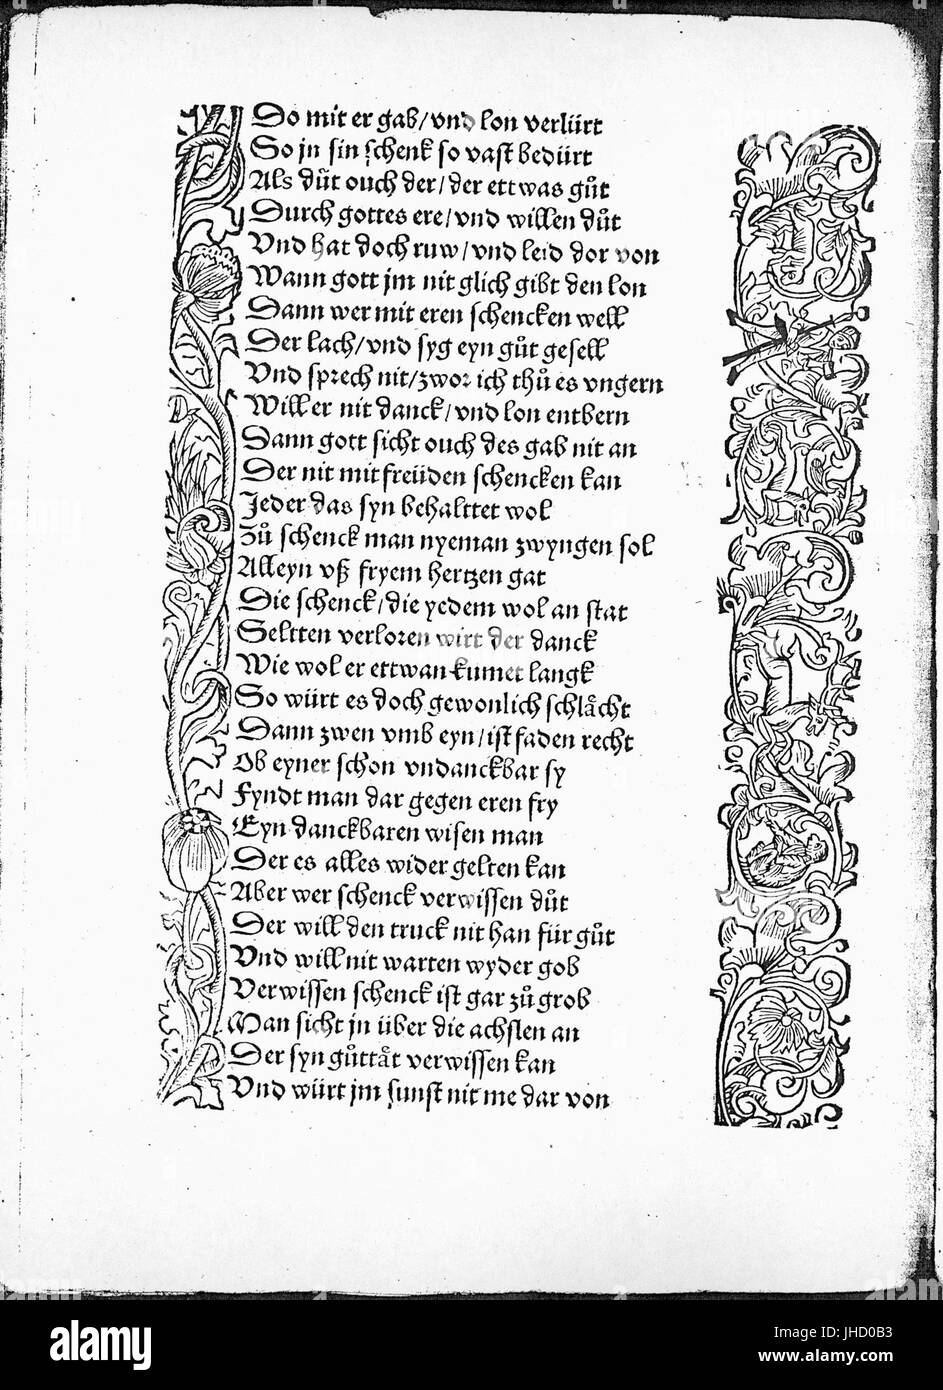 Do mit er gab/ vnd lon verlürt
So jn sin schenk so vast bedürt
Als důt ouch der/ der ettwas gůt
Durch gottes ere/ vnd willen důt
Vnd hat doch ruw/ vnd leid dor von
Wann gott jm nit glich gibt den lon
Dann wer mit eren schencken well
Der lach/ vnd syg eyn gůt gesell
Vnd sprech nit/ zwor ich thů es vngern
Will er nit danck/ vnd lon entbern
Dann gott sicht ouch des gab nit an
Der nit mit freüden schencken kan
Jeder das syn behalttet wol
Zů schenck man nyeman zwyngen sol
Alleyn vß fryem hertzen gat
Die schenck/ die yedem wol an stat
Seltten verloren wirt der danck
Wie wol er ettwan kumet langk
So würt es doch gewonlich schlåcht
Dann zwen vmb eyn/ ist faden recht
Ob eyner schon vndanckbar sy
Fyndt man dar gegen eren fry
Eyn danckbaren wisen man
Der es alles wider gelten kan
Aber wer schenck verwissen důt
Der will den truck nit han für gůt
Vnd will nit warten wyder gob
Verwissen schenck ist gar zů grob
Man sicht jn über die achslen an
Der syn gůttåt verwissen kan
Vnd würt jm sunst nit me dar von
alamy
Image ID: JHD0B3
www.alamy.com